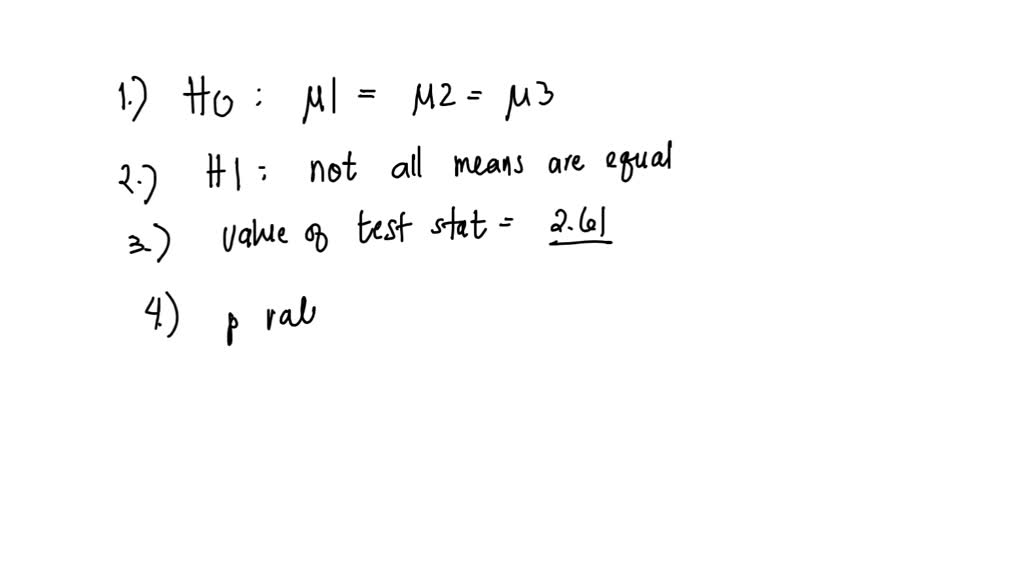 1.) H0 : μ1 = μ2 = μ3
2.) H1 : not all means are equal
3.) value of test stat = 2.61
4.) p val